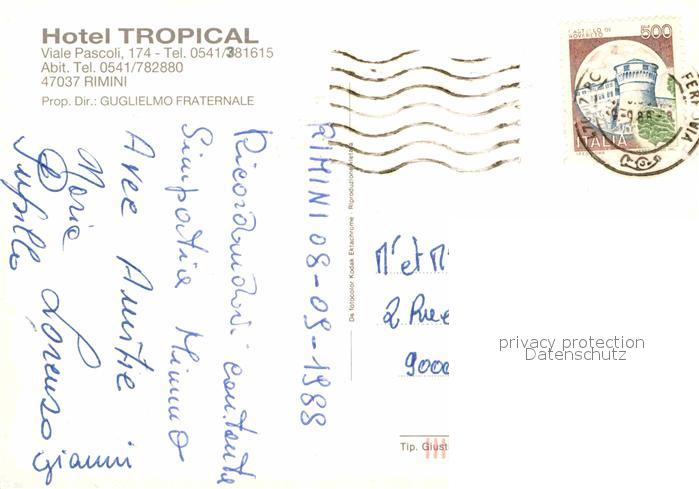 Hotel TROPICAL
Viale Pascoli, 174 - Tel. 0541/381615
Abit. Tel. 0541/782880
47037 RIMINI
Prop. Dir.: GUGLIELMO FRATERNALE
RIMINI 08-09-1988
Ricordandovi con tante
Simpatia
Avec Amitié
Maria
Lorenzo
Gianni
Da fotocolor Kodak Ektachrome - Riproduzione vietata
CASTELLO DI
ROVERETO
500
ITALIA
M et M
2 Rue
9000
privacy protection
Datenschutz
Tip. Giust